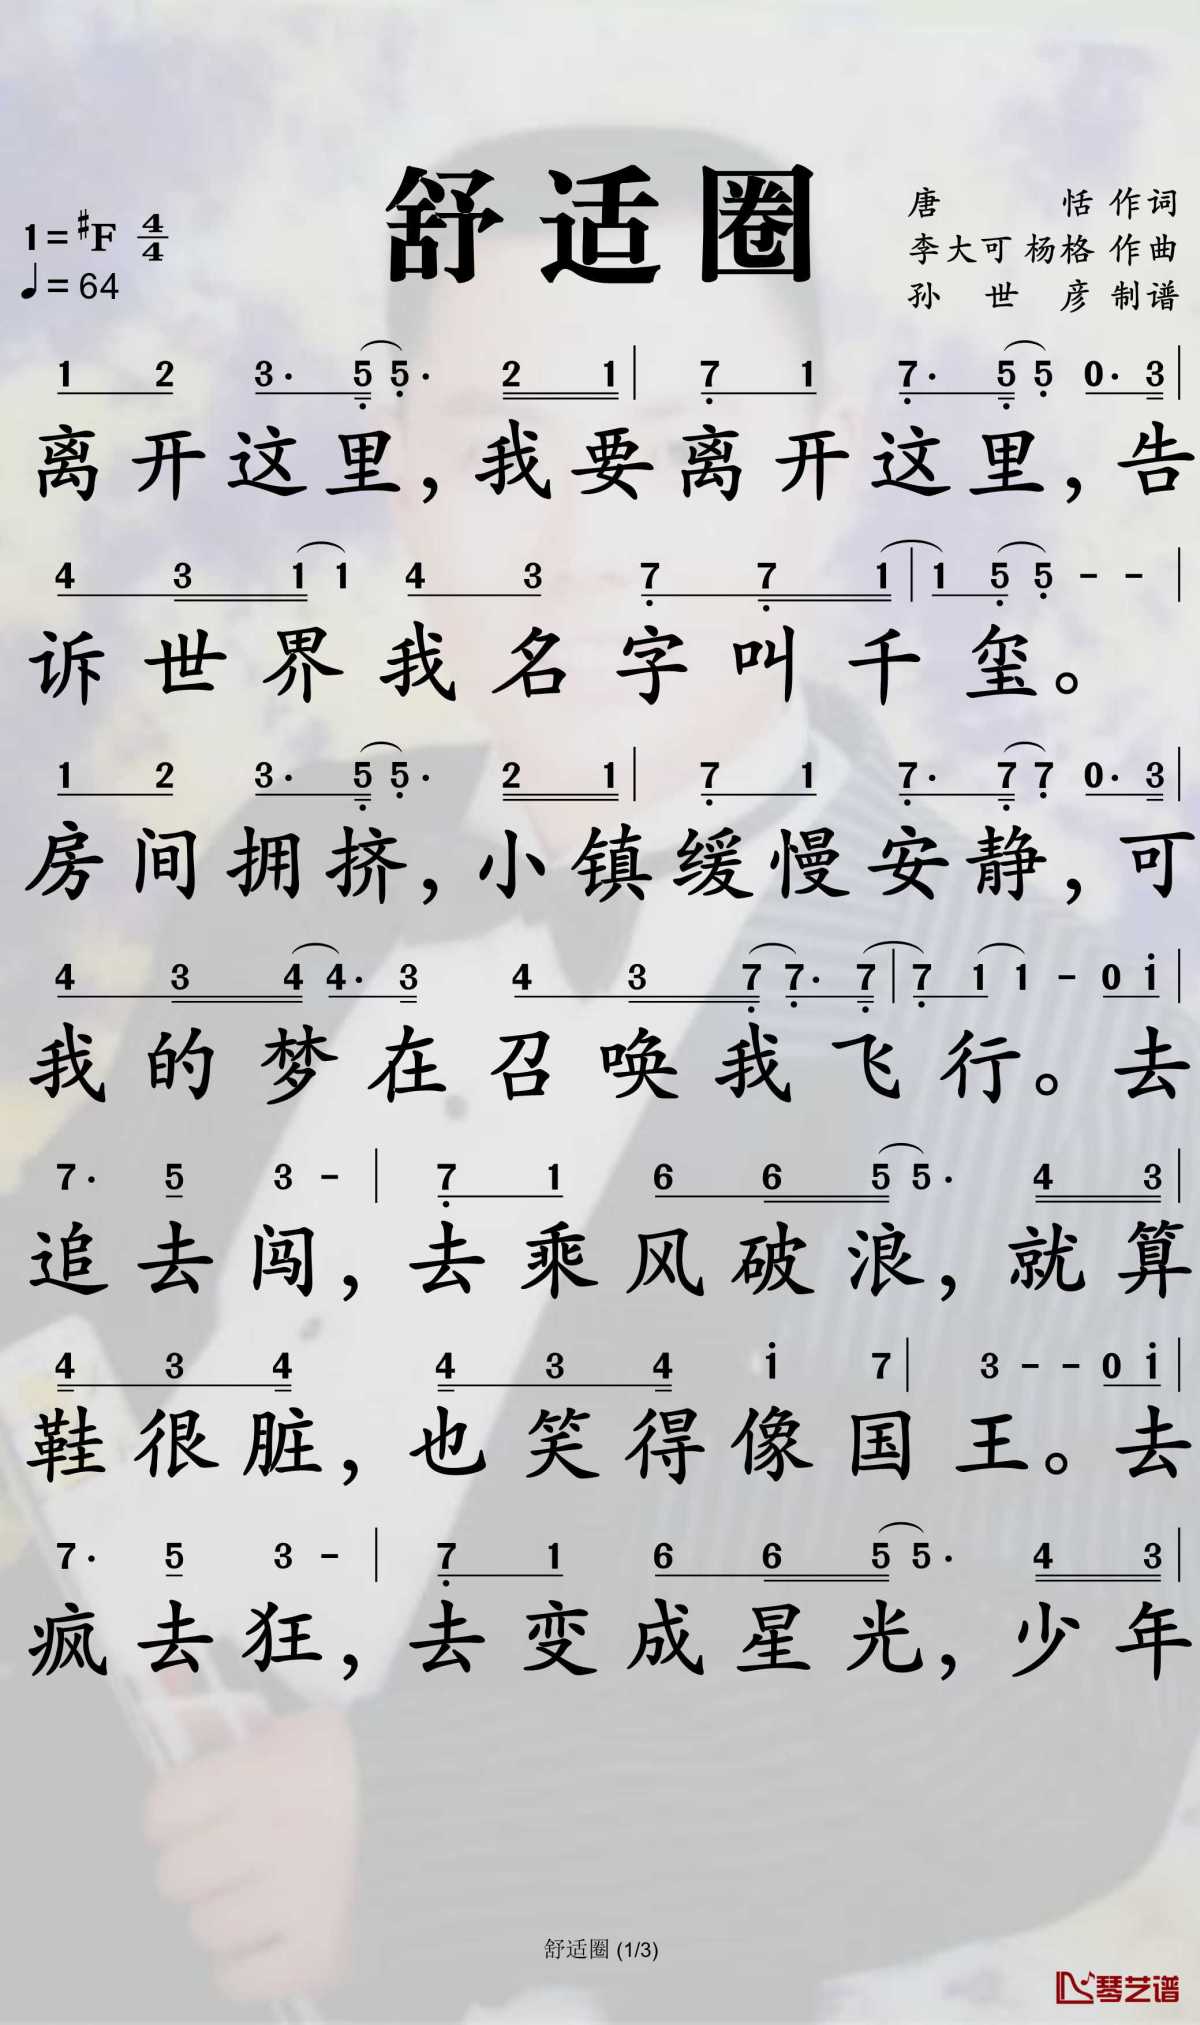 舒适圈
1=#F 4/4
♩=64
唐 恬 作词
李大可 杨格 作曲
孙世彦 制谱
1 2 3· 5 5· 2 1 | 7 1 7· 5 5 0· 3 |
离开这里，我要离开这里，告
4 3 1 1 4 3 7 7 1 | 1 5 5 - - |
诉世界我名字叫千玺。
1 2 3· 5 5· 2 1 | 7 1 7· 7 7 0· 3 |
房间拥挤，小镇缓慢安静，可
4 3 4 4· 3 4 3 7 7· 7 | 7 1 1 - 0 i |
我的梦在召唤我飞行。去
7· 5 3 - | 7 1 6 6 5 5· 4 3 |
追去闯，去乘风破浪，就算
4 3 4 4 3 4 i 7 | 3 - - 0 i |
鞋很脏，也笑得像国王。去
7· 5 3 - | 7 1 6 6 5 5· 4 3 |
疯去狂，去变成星光，少年
舒适圈 (1/3)
琴艺谱